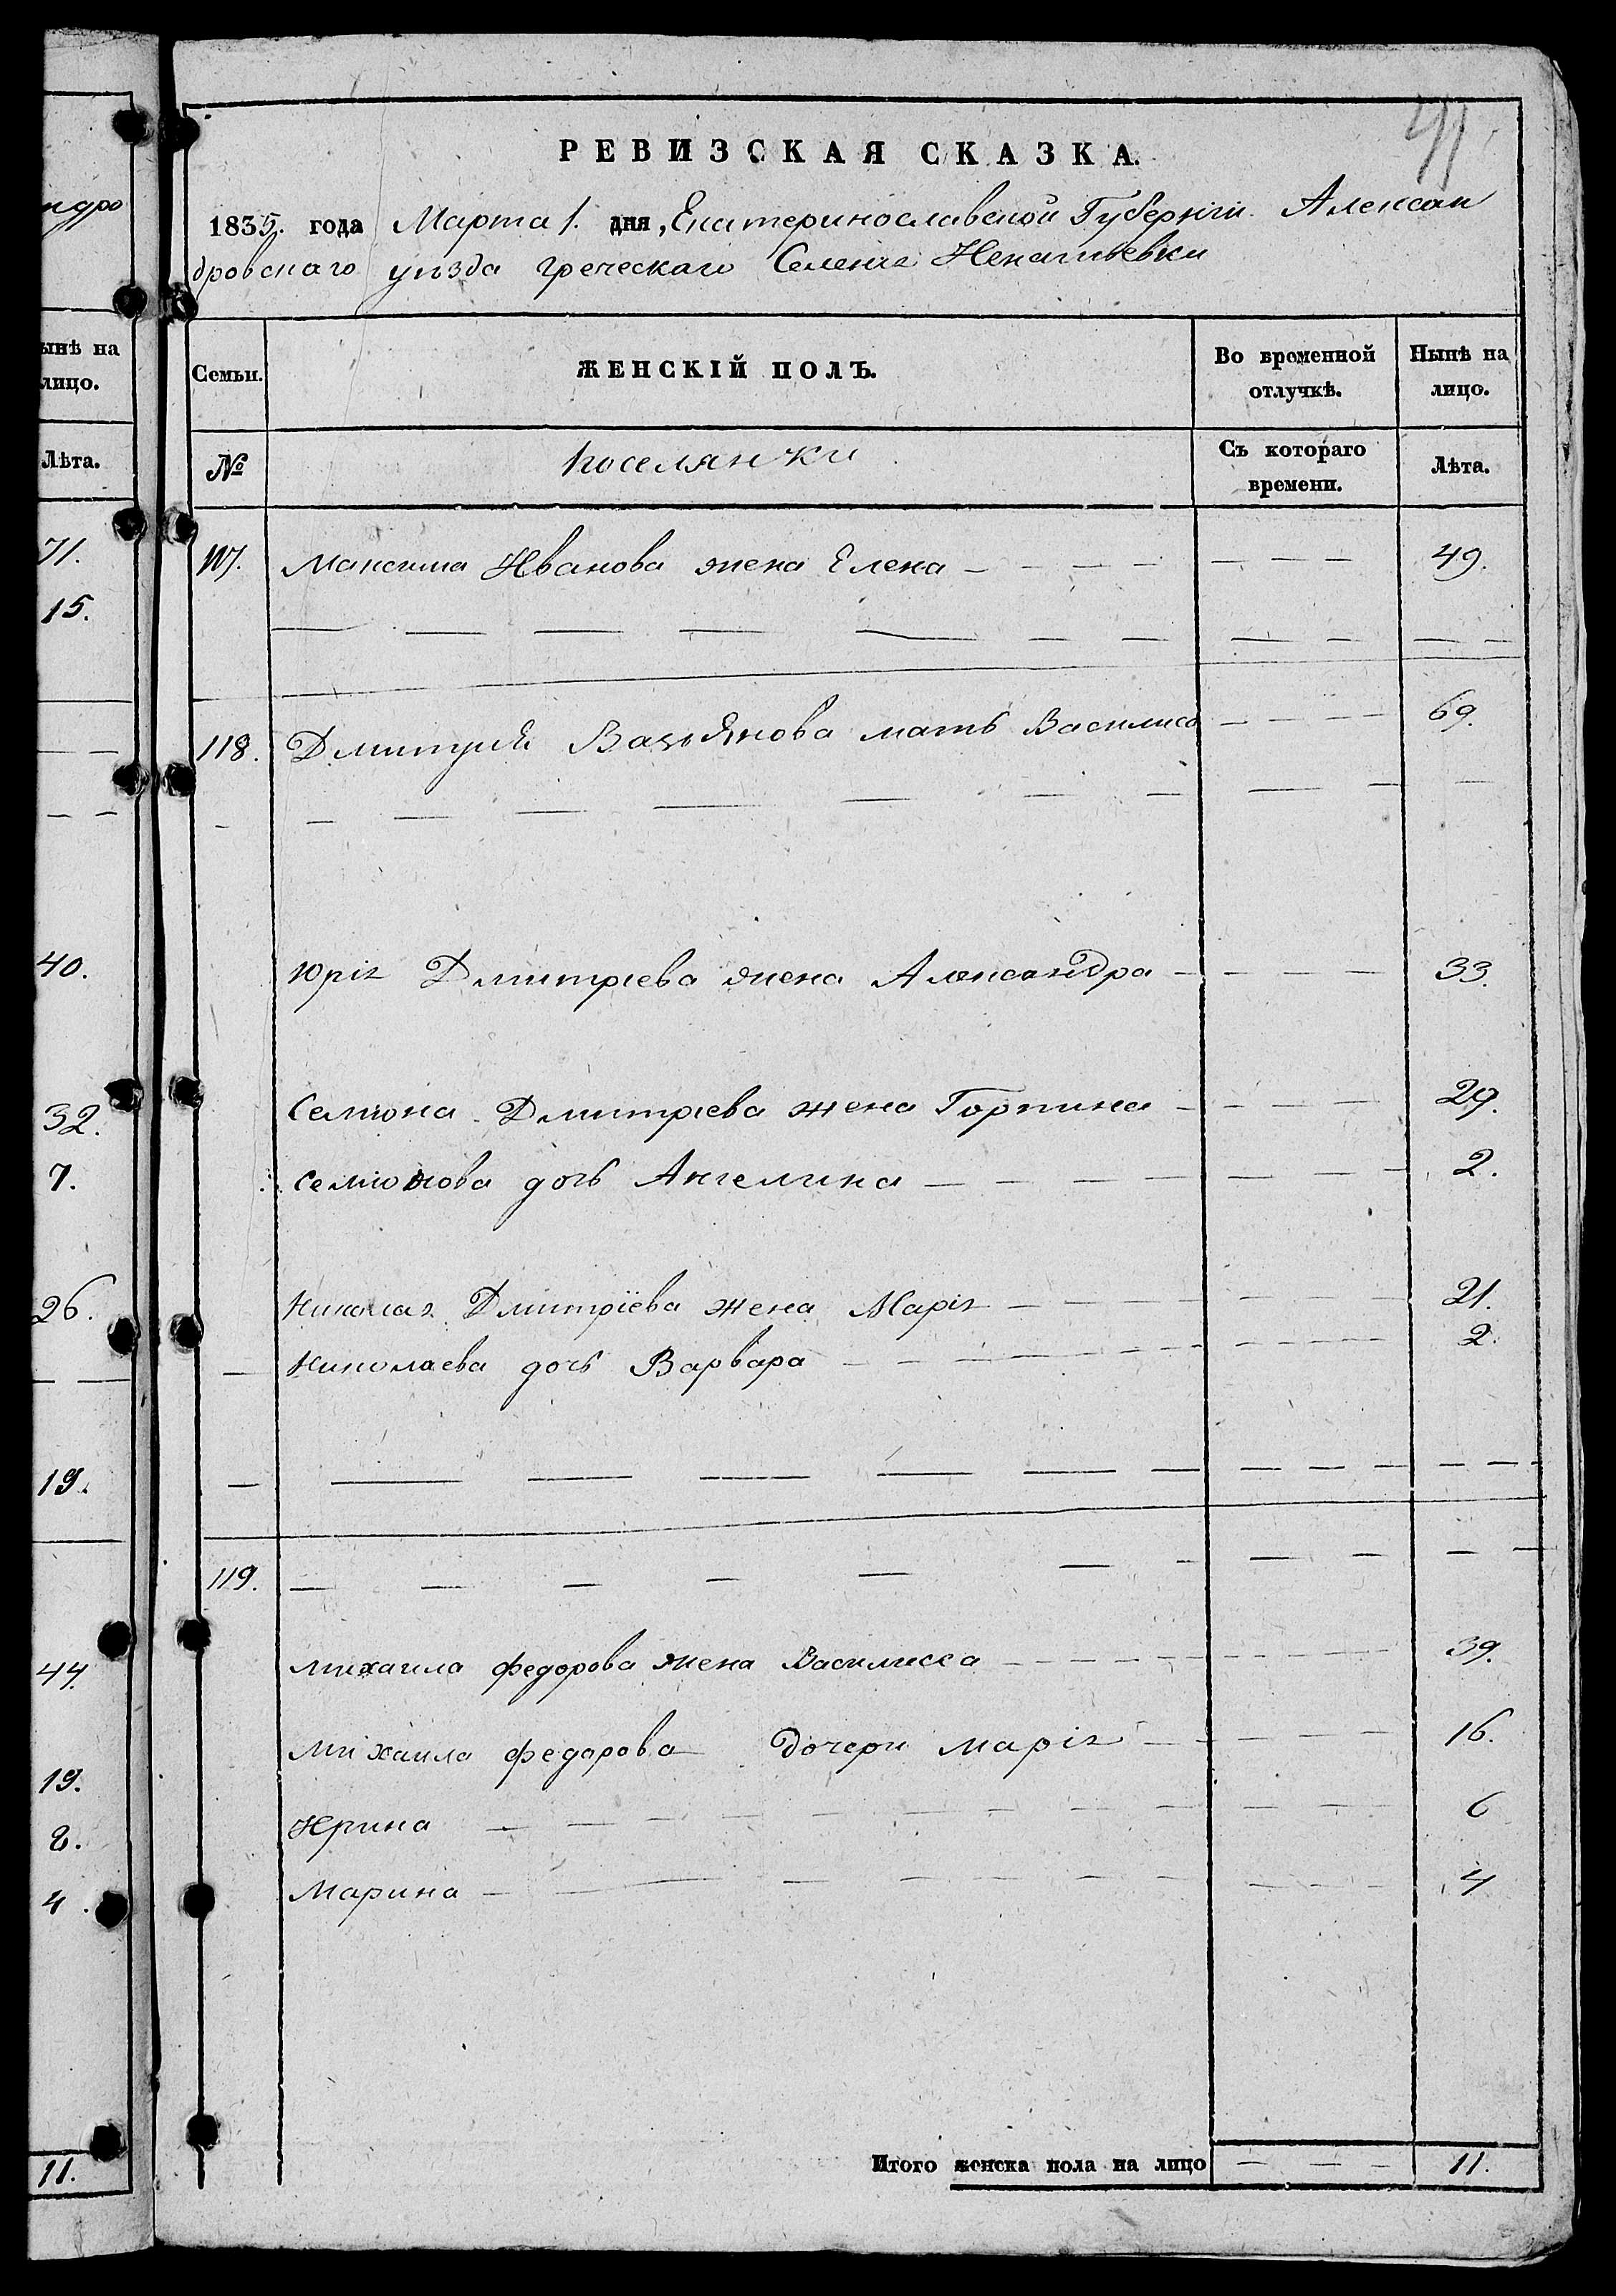 ндро
ынѣ на
лицо.
Лѣта.
71.
15.
40.
32.
7.
26.
19.
44.
19.
8.
4.
11.
РЕВИЗСКАЯ СКАЗКА.
1835. года Марта 1. дня, Екатеринославской Губерніи Алексан
дровскаго уѣзда греческаго Селенія Игнатьевки
Семьи. ЖЕНСКІЙ ПОЛЪ. Во временной отлучкѣ. Нынѣ на лицо.
№ поселянки Съ котораго времени. Лѣта.
117. Максима Иванова жена Елена 49.
118. Дмитрия мать Василиса 69.
Юрія Дмитріева жена Александра 33.
Семіона Дмитріева жена Горпина 29.
Семіонова дочь Ангелина 2.
Николая Дмитріева жена Марія 21.
Николаева дочь Варвара 2.
119.
Михаила Федорова жена Василисса 39.
Михаила Федорова дочери Марія 16.
Ирина 6
Марина 4
Итого женска пола на лицо 11.